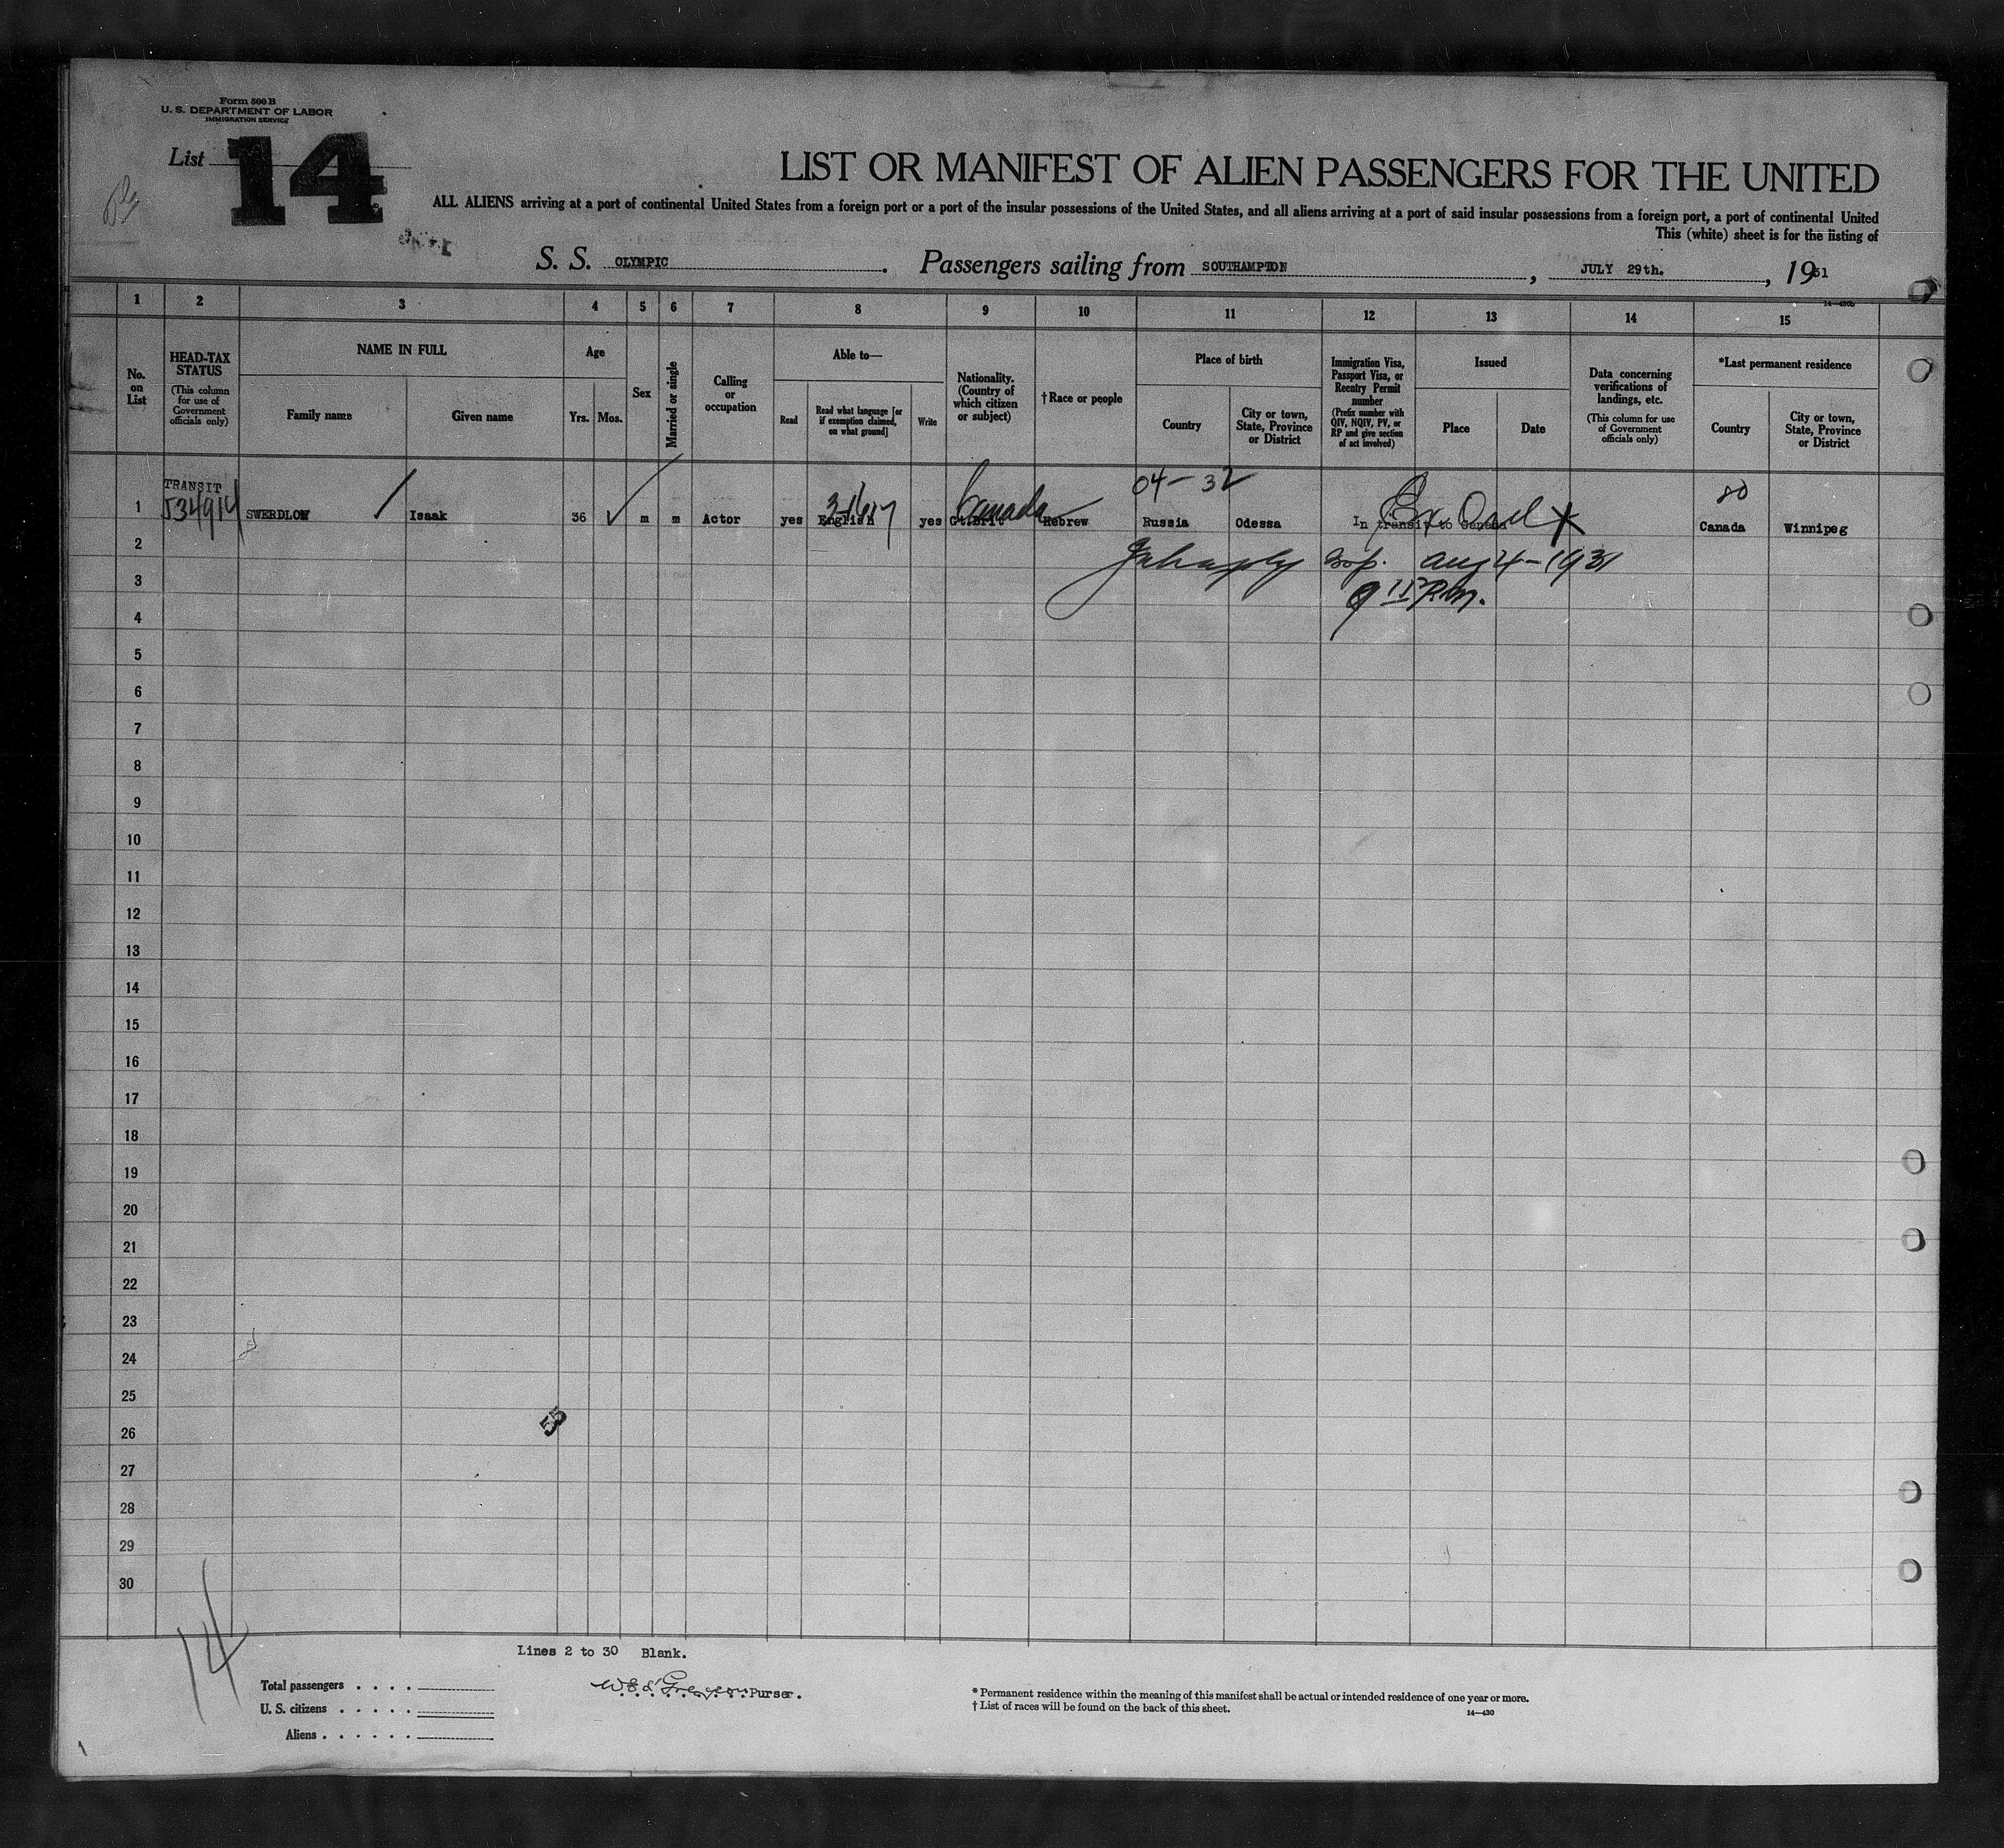 Form 500 B
U. S. DEPARTMENT OF LABOR
IMMIGRATION SERVICE
List 14
LIST OR MANIFEST OF ALIEN PASSENGERS FOR THE UNITED
ALL ALIENS arriving at a port of continental United States from a foreign port or a port of the insular possessions of the United States, and all aliens arriving at a port of said insular possessions from a foreign port, a port of continental United
This (white) sheet is for the listing of
S. S. OLYMPIC. Passengers sailing from SOUTHAMPTON, JULY 29th., 1931
1 2 3 4 5 6 7 8 9 10 11 12 13 14 15
No. on List
HEAD-TAX STATUS
(This column for use of Government officials only)
NAME IN FULL
Family name
Given name
Age
Yrs.
Mos.
Sex
Married or single
Calling or occupation
Able to—
Read
Read what language [or if exemption claimed, on what ground]
Write
Nationality. (Country of which citizen or subject)
†Race or people
Place of birth
Country
City or town, State, Province or District
Immigration Visa, Passport Visa, or Reentry Permit number
(Prefix number with QIV, NQIV, PV, or RP and give section of act involved)
Issued
Place
Date
Data concerning verifications of landings, etc.
(This column for use of Government officials only)
*Last permanent residence
Country
City or town, State, Province or District
TRANSIT 04-32 80
1 534914 SWERDLOW Isaak 36 m m Actor yes English yes Gt.Brit Canada Hebrew Russia Odessa In transit to Canada Canada Winnipeg
2 Aug 4-1931
3 9 15 P.M.
4
5
6
7
8
9
10
11
12
13
14
15
16
17
18
19
20
21
22
23
24
25
26
27
28
29
30
55
14
Lines 2 to 30 Blank.
Purser.
Total passengers
U. S. citizens
Aliens
* Permanent residence within the meaning of this manifest shall be actual or intended residence of one year or more.
† List of races will be found on the back of this sheet.
14—430